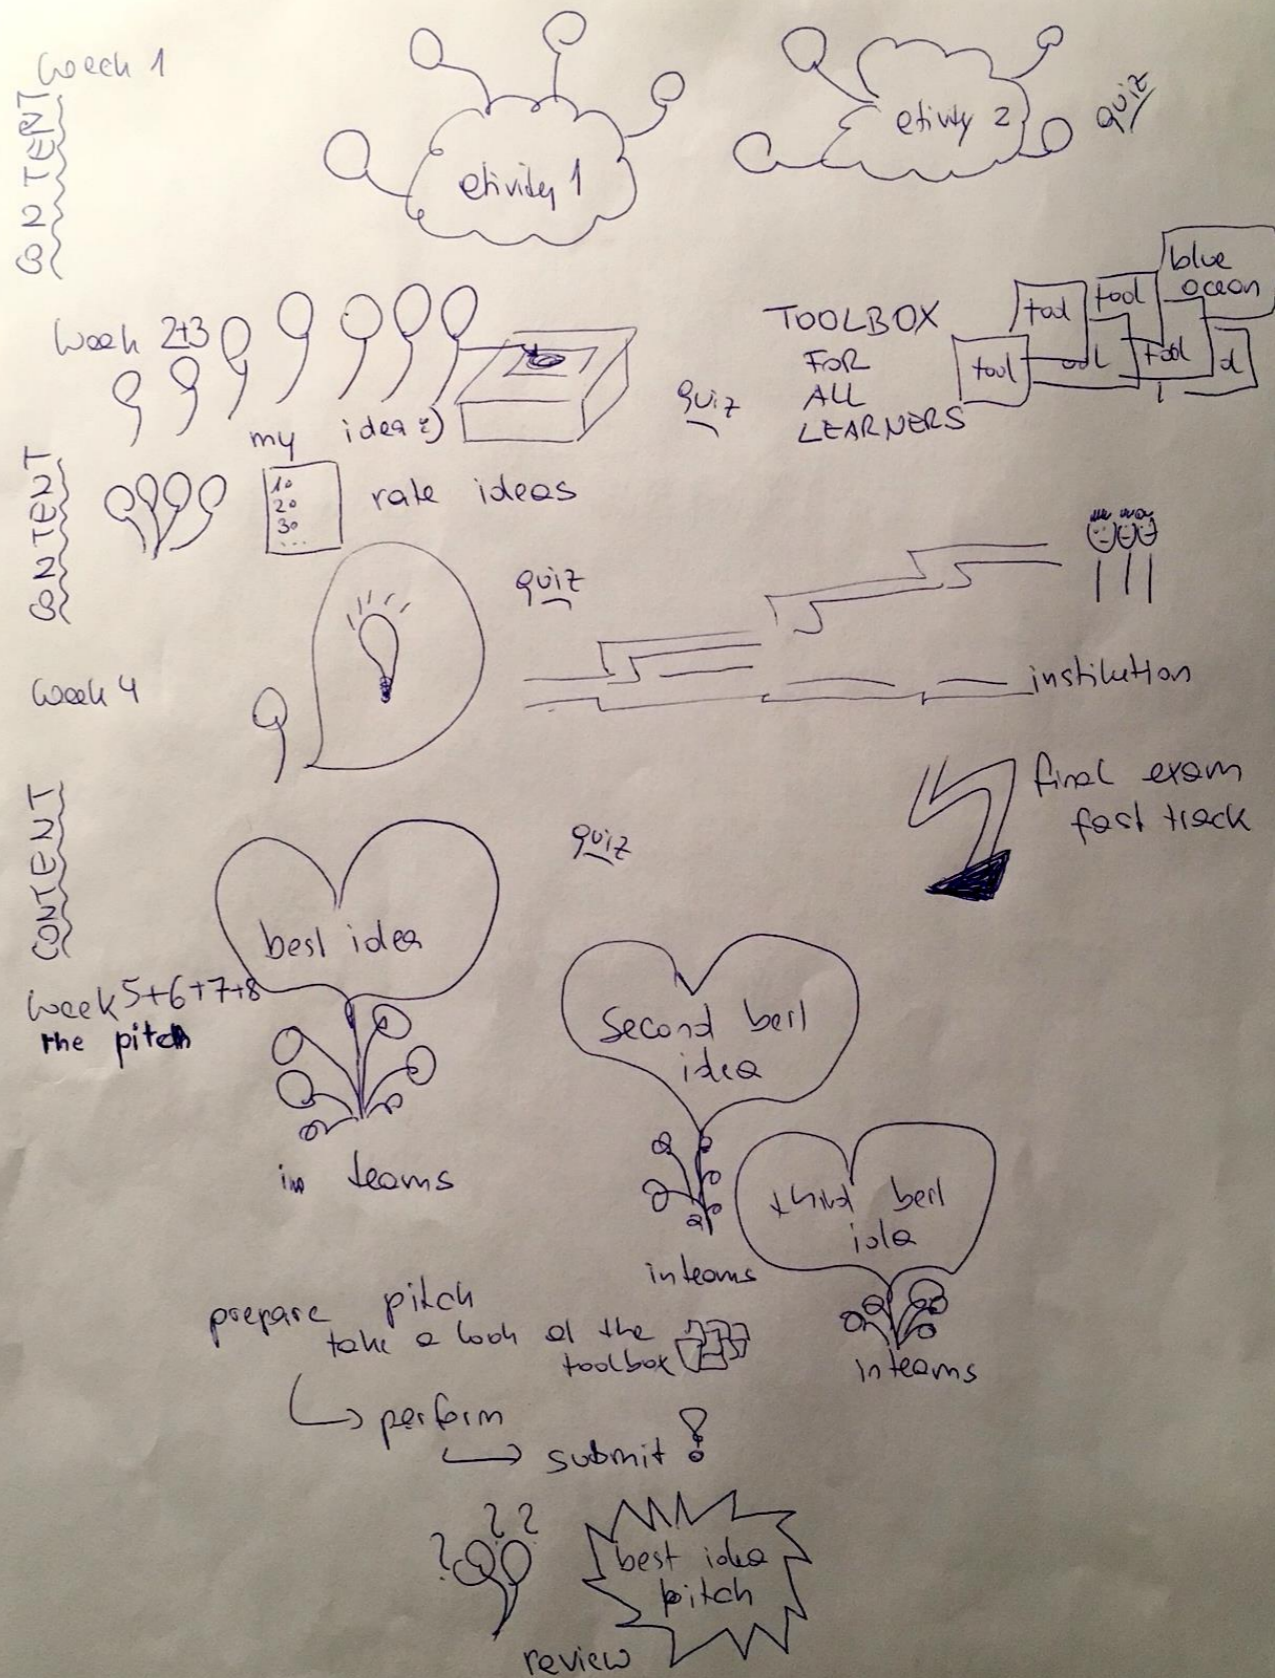 week 1
CONTENT
etivity 1
etivity 2
quiz
week 2+3
my idea :)
quiz
TOOLBOX
FOR
ALL
LEARNERS
tool
tool
tool
ool
tool
ol
blue
ocean
CONTENT
10
20
30
...
rate ideas
quiz
week 4
institution
final exam
fast track
CONTENT
quiz
best idea
week 5+6+7+8
the pitch
in teams
second best
idea
in teams
third best
idea
in teams
prepare pitch
take a look at the
toolbox
perform
submit !
? ? ?
best idea
pitch
review